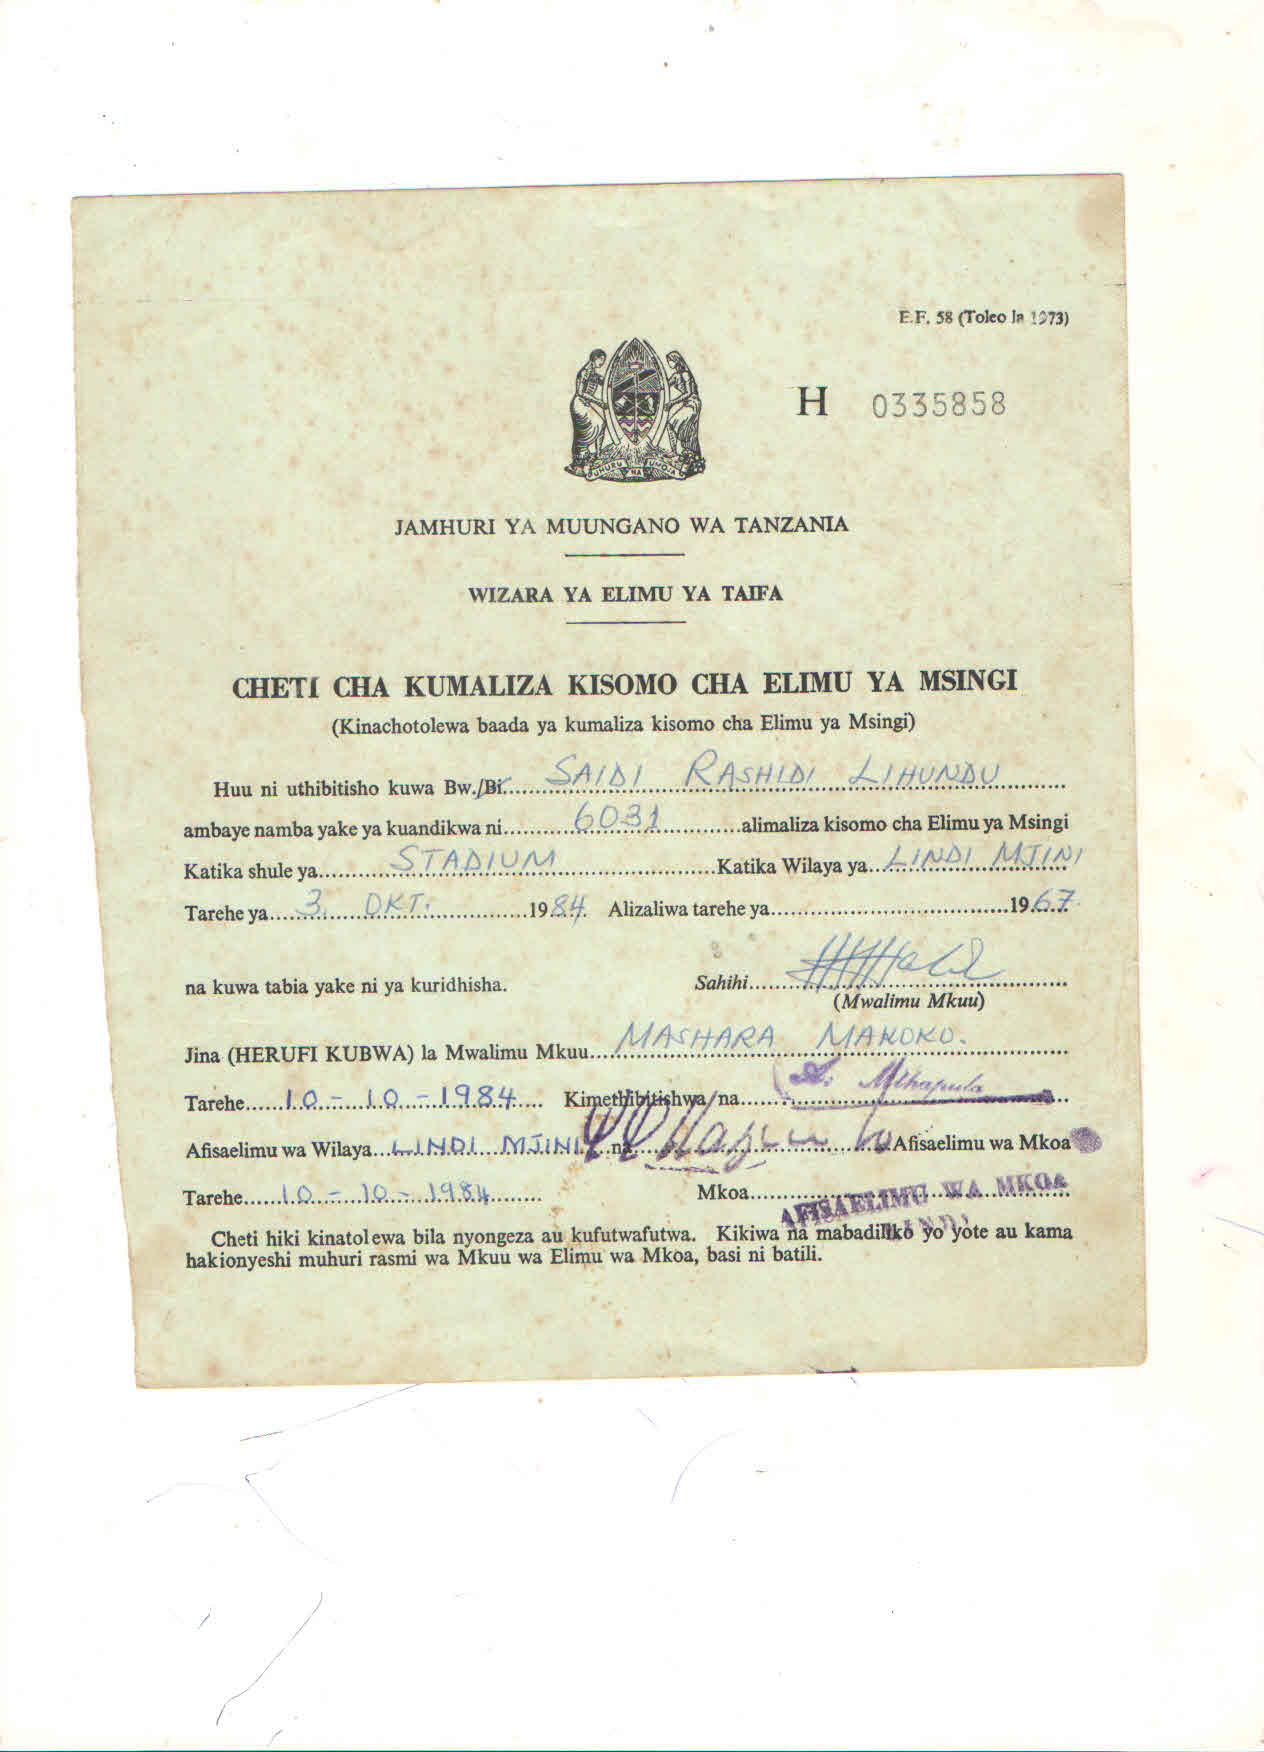 E.F. 58 (Toleo la 1973)
UHURU NA UMOJA
H 0335858
JAMHURI YA MUUNGANO WA TANZANIA
WIZARA YA ELIMU YA TAIFA
CHETI CHA KUMALIZA KISOMO CHA ELIMU YA MSINGI
(Kinachotolewa baada ya kumaliza kisomo cha Elimu ya Msingi)
Huu ni uthibitisho kuwa Bw./Bi. SAIDI RASHIDI LIHUNDU
ambaye namba yake ya kuandikwa ni 6031 alimaliza kisomo cha Elimu ya Msingi
Katika shule ya STADIUM Katika Wilaya ya LINDI MJINI
Tarehe ya 3. OKT. 1984 Alizaliwa tarehe ya 1967
na kuwa tabia yake ni ya kuridhisha. Sahihi
(Mwalimu Mkuu)
Jina (HERUFI KUBWA) la Mwalimu Mkuu MASHARA MAKOKO.
Tarehe 10-10-1984 Kimethibitishwa na
Afisaelimu wa Wilaya LINDI MJINI na Afisaelimu wa Mkoa
Tarehe 10-10-1984 Mkoa
AFISAELIMU WA MKOA
LINDI
Cheti hiki kinatolewa bila nyongeza au kufutwafutwa. Kikiwa na mabadiliko yo yote au kama
hakionyeshi muhuri rasmi wa Mkuu wa Elimu wa Mkoa, basi ni batili.